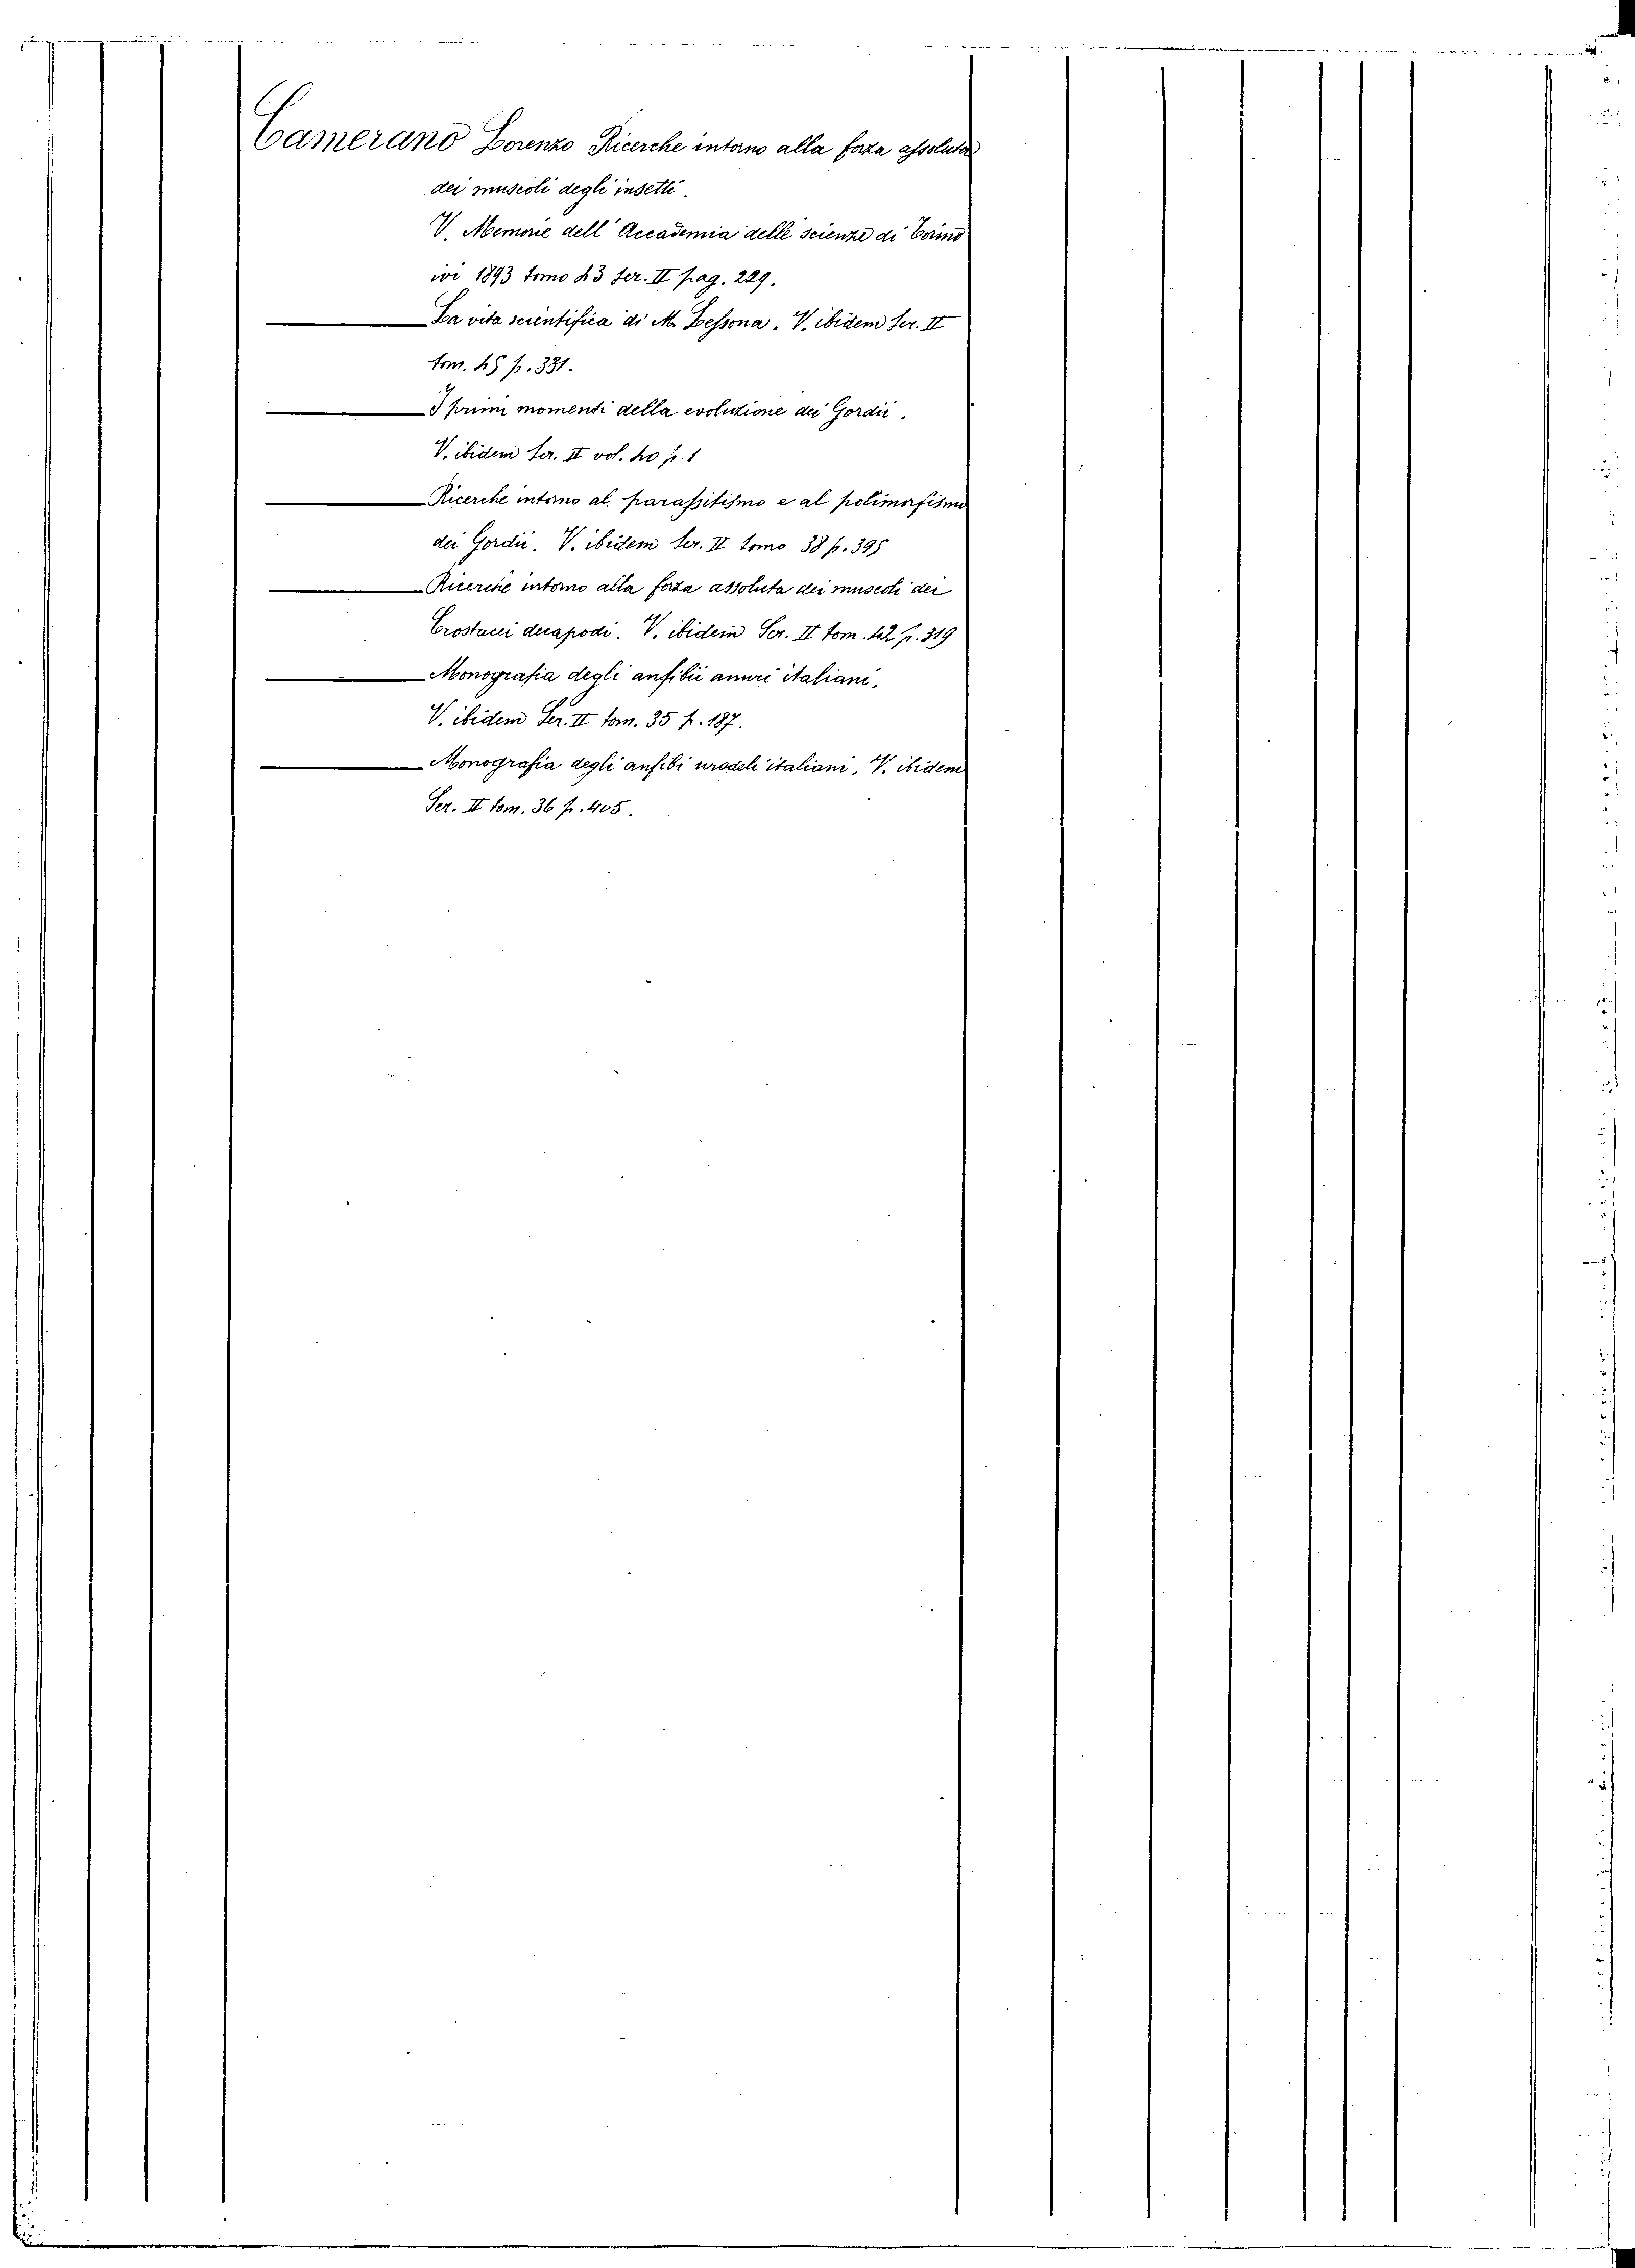 Camerano Lorenzo Ricerche intorno alla forza assoluta
dei muscoli degli insetti.
V. Memorie dell' Accademia delle scienze di Torino
ivi 1893 tomo 43 ser. II pag. 229.
La vita scientifica di M. Lessona. V. ibidem ser. II
tom. 45 p. 331.
I primi momenti della evoluzione dei Gordii.
V. ibidem ser. II vol. 40 p. 1
Ricerche intorno al parassitismo e al polimorfismo
dei Gordii. V. ibidem ser. II tomo 38 p. 395
Ricerche intorno alla forza assoluta dei muscoli dei
Crostacei decapodi. V. ibidem Ser. II tom. 42 p. 319
Monografia degli anfibii anuri italiani.
V. ibidem Ser. II tom. 35 p. 187.
Monografia degli anfibi urodeli italiani. V. ibidem
Ser. II tom. 36 p. 405.